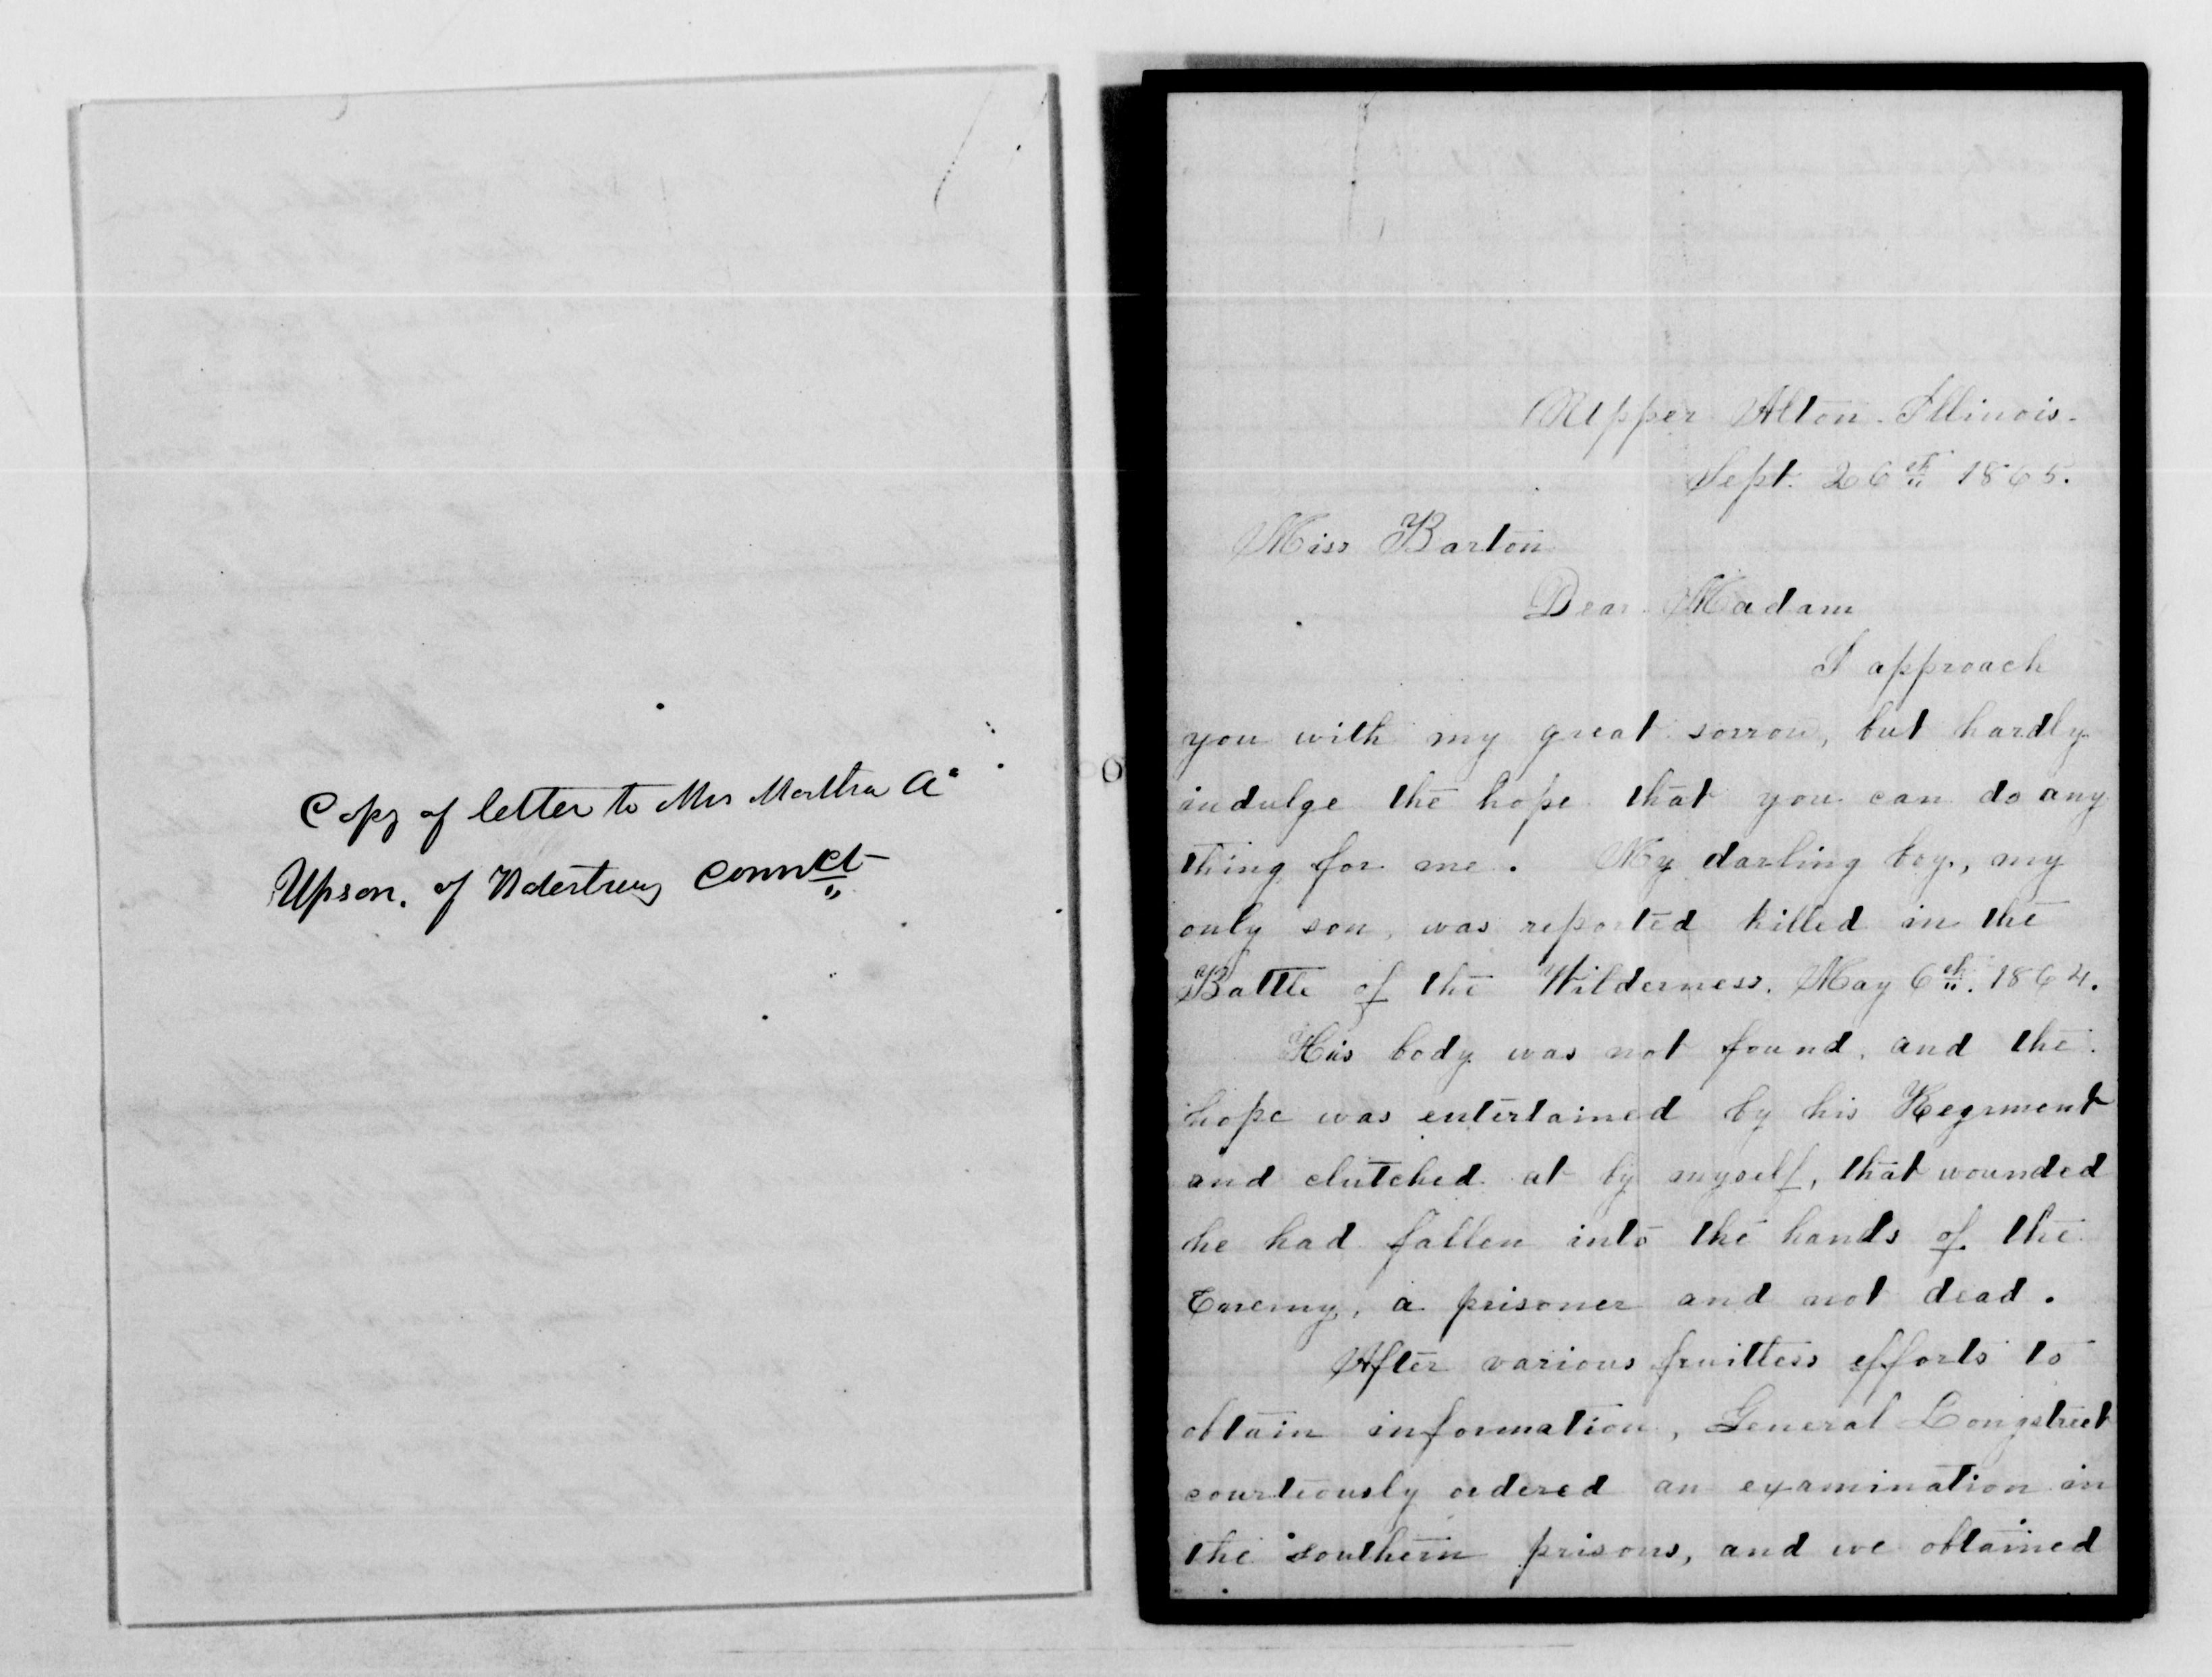 Copy of letter to Mrs Martha A.
Upson. of Watertreuy Connct
Upper Alton. Illinois.
Sept. 26th 1865.
Miss Barton
Dear Madam
I approach
you with my great sorrow, but hardly
indulge the hope that you can do any
thing for me. My darling boy, my
only son, was reported killed in the
Battle of the Wilderness. May 6th. 1864.
His body was not found, and the
hope was entertained by his Regiment
and clutched at by myself, that wounded
he had fallen into the hands of the
Enemy, a prisoner and not dead.
After various fruitless efforts to
obtain information, General Longstreet
courteously ordered an examination in
the Southern prisons, and we obtained